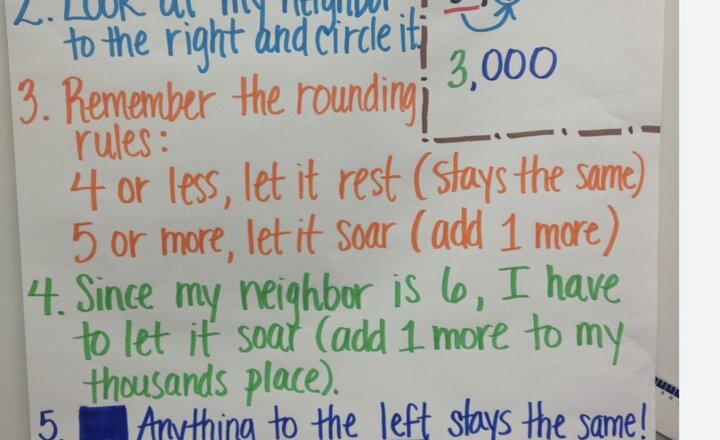 2. Look at my neighbor
to the right and circle it.
3,000
3. Remember the rounding
rules:
4 or less, let it rest (stays the same)
5 or more, let it soar (add 1 more)
4. Since my neighbor is 6, I have
to let it soar (add 1 more to my
thousands place).
5. Anything to the left stays the same!